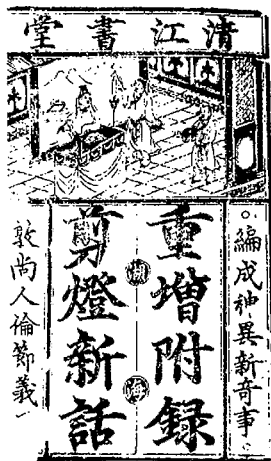 清江書堂
編成神異新奇事
重增附録
海
剪燈新話
敦尚人倫節義